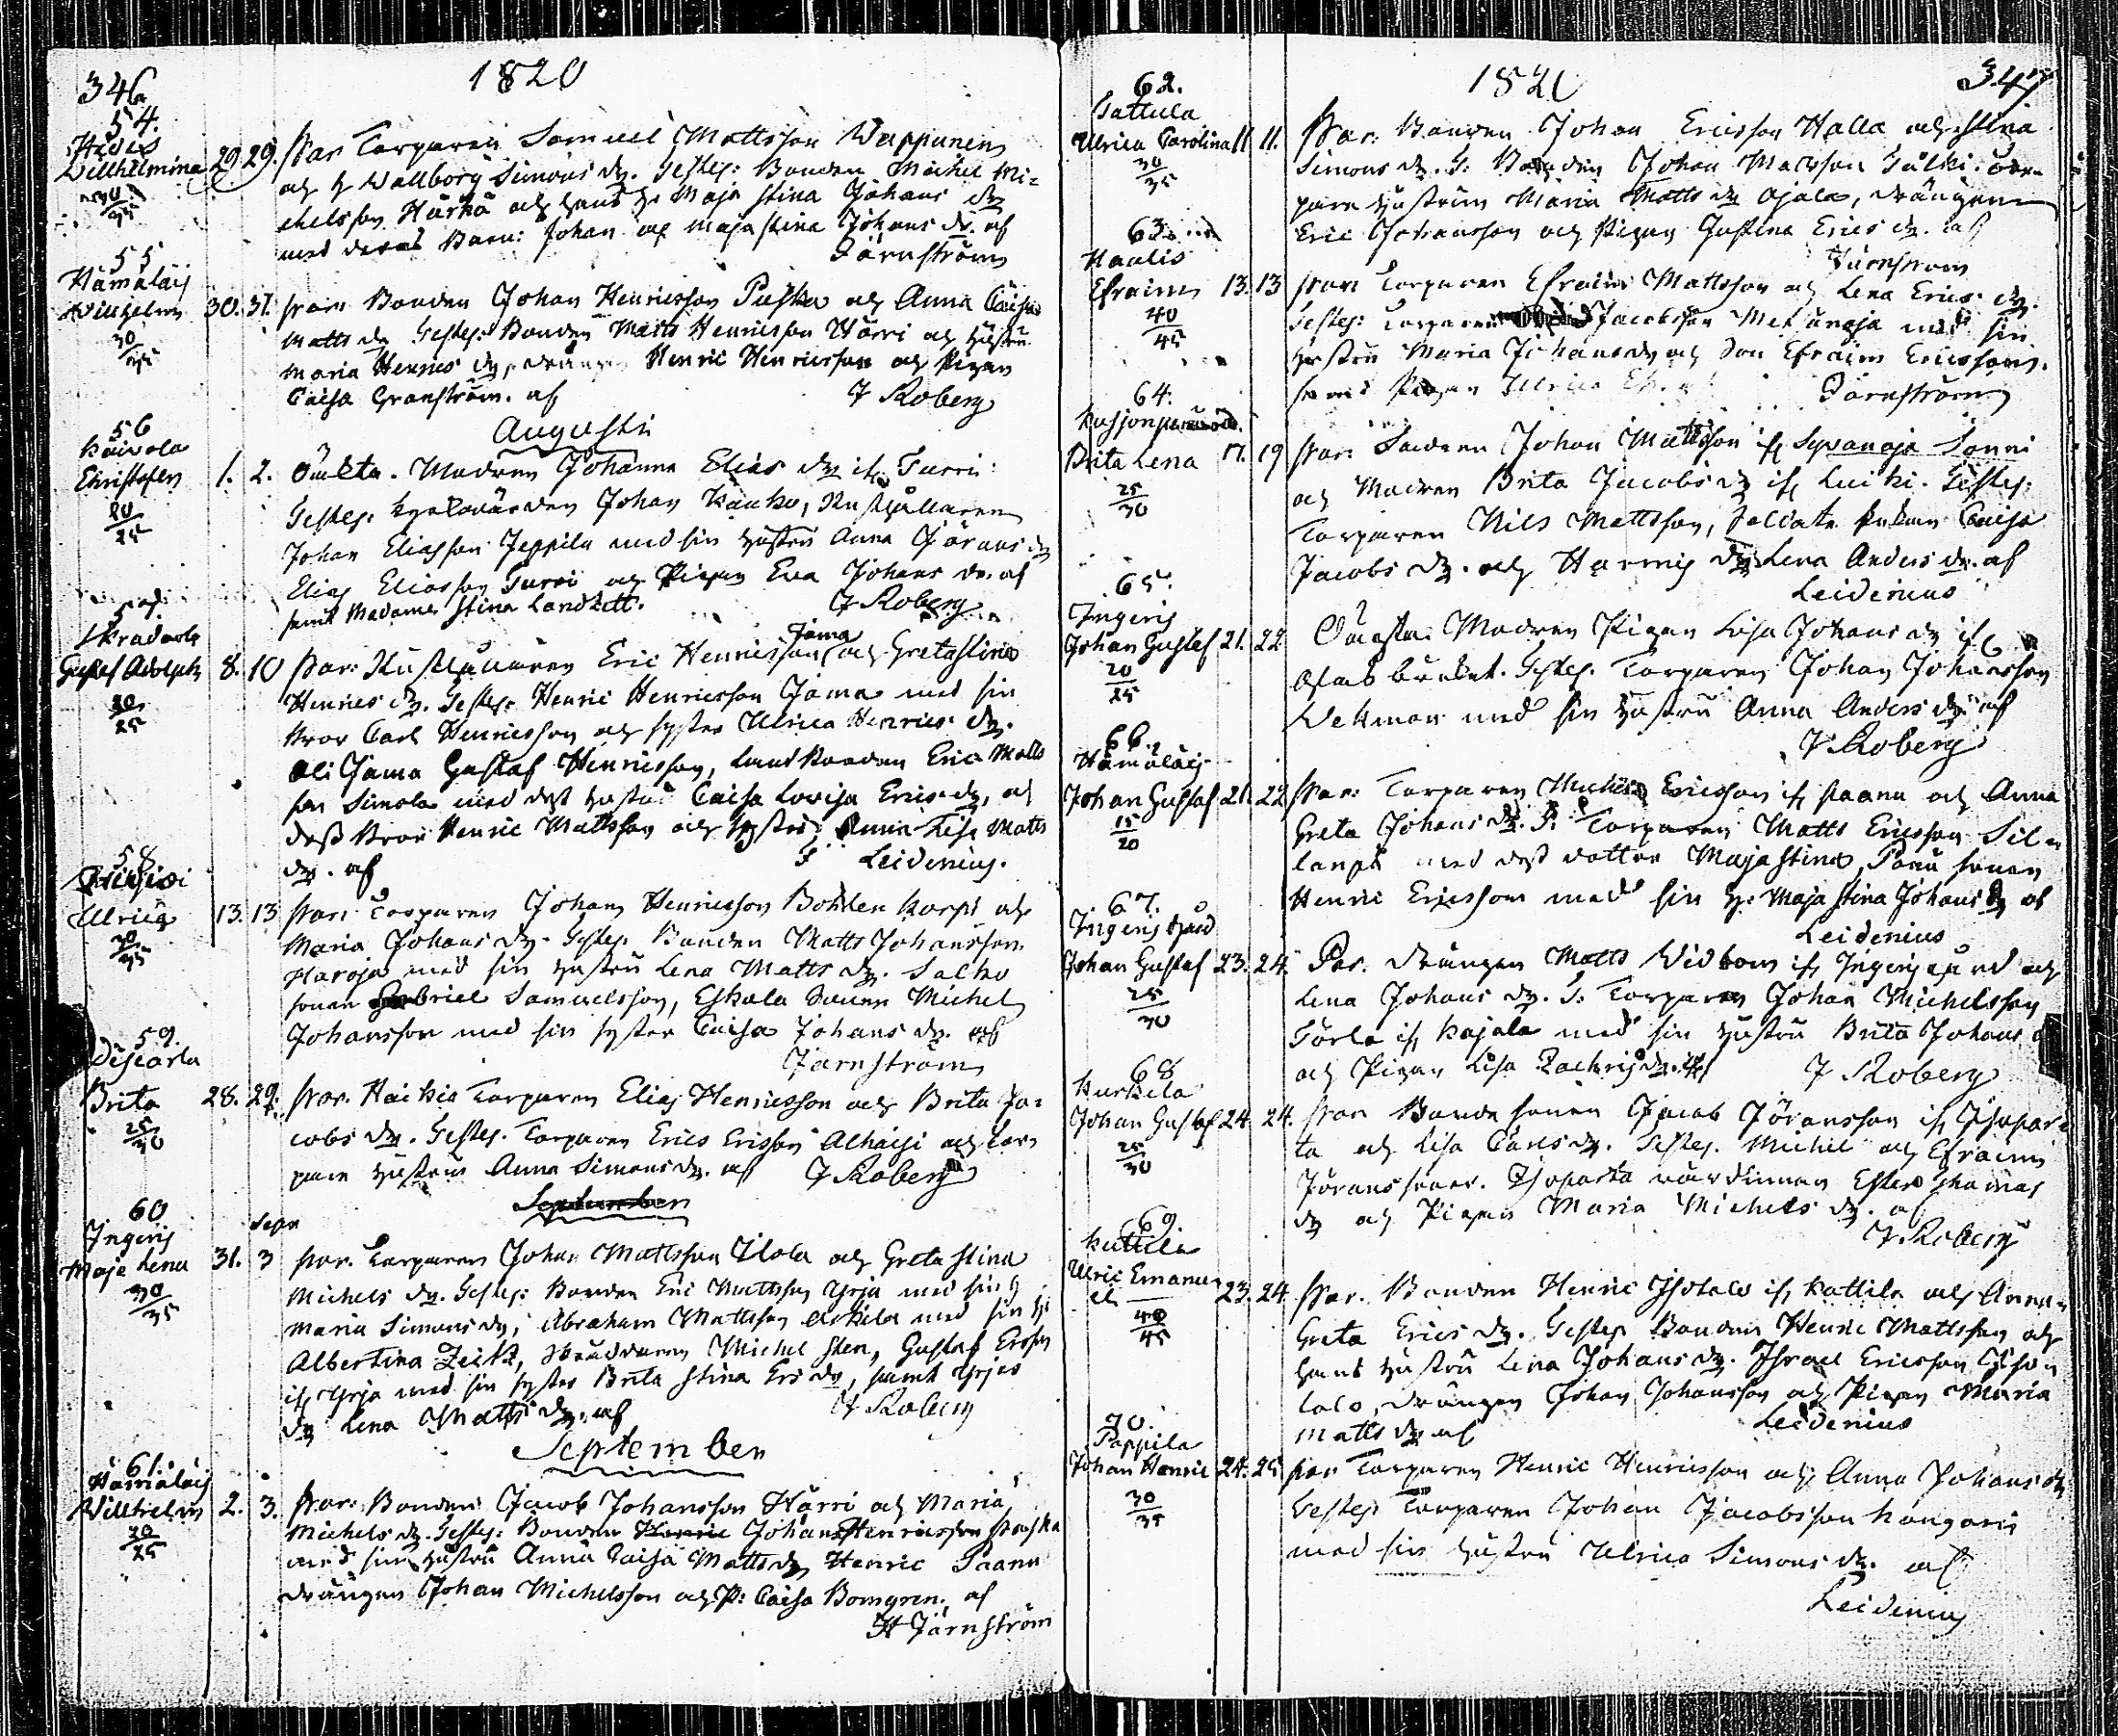 346
1820
54.
Willhelmina 29 29. Par Torparen Samuel Mattsson Wappunen
30/35
och h Wallborg Simons dr. Testes: Bonden Michel Mi=
chelsson Härkä och hans h. Maja Stina Johans dr
med deras Barn: Johan och Maja Stina Johans dr. af
Järnström
55
Hämäläis
Wilhelm 30. 31. Par. Bonden Johan Henricsson Puska och Anna Caisa
30/35
Matts dr Testes: Bonden Matts Henricsson Härri och hustru
Maria Henrics dr, drängen Henric Henricsson och Pigan
Caisa Granström. af J Roberg
Augusti
56
Kaivola
Christofer 1. 2. Oäkta. Modren Johanna Elias dr if. Turri
20/25
Testes: Johan Kauko, Rusthållaren
Johan Eliasson Jeppila med sin hustru Anna Görans dr
Elias Eliasson Turri och Pigan Eva Johans dr. af
samt Madame Stina Landzett. J Roberg
57.
Gustaf Adolph 8. 10 Par: Rusthållaren Eric Henricsson Jama och Greta Stina
20/25
Henrics dr. Testes: Henric Henricsson Jama med sin
bror Carl Henricsson och syster Ulrica Henrics dr.
Oli Jama Gustaf Henricsson, Landbonden Eric Matts
son Simola med dess hustru Caisa Lovisa Erics dr, och
dess bror Henric Mattsson och syster Anna Lisa Matts
dr. af Leidenius.
58
Ulrica 13. 13 Par: Torparen Johan Henricsson Bohlen Korpi och
30/35
Maria Johans dr. Testes. Bonden Matts Johansson
Haroja med sin hustru Lena Matts dr. Salko
sonen Gabriel Samuelsson, Eskola sonen Michel
Johansson med sin syster Caisa Johans dr. af
Järnström
59.
Brita 28. 29. Par. Haikio Torparen Elias Henricsson och Brita Ja=
25/30
cobs dr. Testes. Torparen Erics Ericsson Alhaisi och Tor=
pare hustrun Anna Simons dr. af J Roberg
September
60
Ingeris Sepr
Maja Lena 31. 3 Par. Torparen Johan Mattsson Ilola och Greta Stina
30/35
Michels dr. Testes: Bonden Eric Mattsson Yrja med sin h
Maria Simons dr, Abraham Mattsson Eskila med sin h:
Albertina Zeitz, Skräddaren Michel Sten, Gustaf Ersson
if. Yrja med sin syster Brita Stina Ers dr, samt Yrjas
dr Lena Matts dr. af J Roberg
September
61.
Hämäläis
Willhelm 2. 3. Par: Bonden Jacob Johansson Härri och Maria
20/25
Michels dr. Testes: Bonden Henric Johan Henricsson Puska
med sin hustru Anna Caisa Matts dr Henric Paanu
drängen Johan Michelsson och P: Caisa Bomgren. af
H Järnström
1820 347
62.
Tattula
Ulrica Carolina 11 11. Par: Bonden Johan Ericsson Halla och Stina
30/35
Simons dr. T: Bonden Johan Mattsson Tulki. Tor=
pare hustrun Maria Matts dr Ojala, drängen
Eric Johansson och Pigan Justina Erics dr. af
Järnström
63.
Haulis
Efraim 13. 13 Par: Torparen Efraim Mattsson och Lena Erics dr.
40/45
Testes: Torparen Jacobsson Metänoja med sin
hustru Maria Johans dr och Son Efraim Ericsson
samt Pigan Ulrica Järnström
64.
Brita Lena 17. 19 Par: Sonen Johan Mattsson if. Sepänoja Sonni
25/30
och Modren Brita Jacobs dr if. Luiki. Testes:
Torparen Nils Mattsson, Soldate Enkan Caisa
Jacobs dr. och Harmis dr Lena Anders dr. af
Leidenius
65.
Ingeris
Johan Gustaf 21. 22 Oäkta: Modren Pigan Lisa Johans dr if.
20/25
Glasbruket. Testes. Torparen Johan Johansson
Wekman med sin hustru Anna Anders dr af
J Roberg
66.
Hämäläis
Johan Gustaf 21. 22 Par: Torparen Michel Ericsson if. Paanu och Anna
15/20
Greta Johans dr. T: Torparen Matts Ericsson Sil=
lanpä med dess dotter Maja Stina, Panu sonen
Henric Ericsson med sin h. Maja Stina Johans dr af
Leidenius
67.
Ingeris
Johan Gustaf 23. 24. Par. drängen Matts Widbom if. Ingeris och
25/30
Lena Johans dr. T: Torparen Johan Michelsson
Törla if. Kojala med sin hustru Brita Johans
och Pigan Lisa Zachris dr. af J Roberg
68
Kurkela
Johan Gustaf 24. 24. Par Bonde sonen Jacob Jöransson if. Isopar=
25/30
ta och Lisa Carls dr. Testes. Michel och Efraim
Jörans söner. Isoparta värdinnan Ester Thomas
dr och Pigan Maria Michels dr. af
J Roberg
69.
Kattila
Ulric Emanu=
el 23. 24 Par. Bonden Henric Isotalo if. Kattila och Anna
40/45
Greta Erics dr. Testes Bonden Henric Mattsson och
hans hustru Lena Johans dr. Israel Ericsson Iso=
talo, drängen Johan Johansson och Pigan Maria
Matts dr af Leidenius
70.
Pappila
Johan Henric 24. 25 Par Torparen Henric Henricsson och Anna Johans dr
30/35
Testes: Torparen Johan Jacobsson Kangaris
med sin hustru Ulrica Simons dr. af
Leidenius